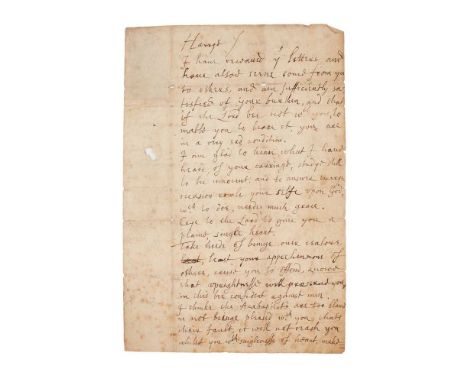 Harry
I have receaued yr letters, and
haue alsoe seene some from you
to others, and am sufficiently sa
tisfied of your burden, and that
if the Lord bee not wth you, to
inable you to beare it, you are
in a very sad condition.
I am glad to heare what I haue
heard of your carriage, studye still
to be innocent, and to answer every
occasion roule your selfe upon God,
wch to doe, needes much grace.
Crye to the Lord to give you a
plaine single heart.
Take heede of beinge over iealous,
least your apprehensions of
others, cause you to offend, knowe
that uprightnesse will preserve you,
in this bee confident against men.
I thinke the Anabaptists are too blame
in not beinge pleased wth you, thats
their fault, it will not reach you
whilst you wth singlenesse of heart make